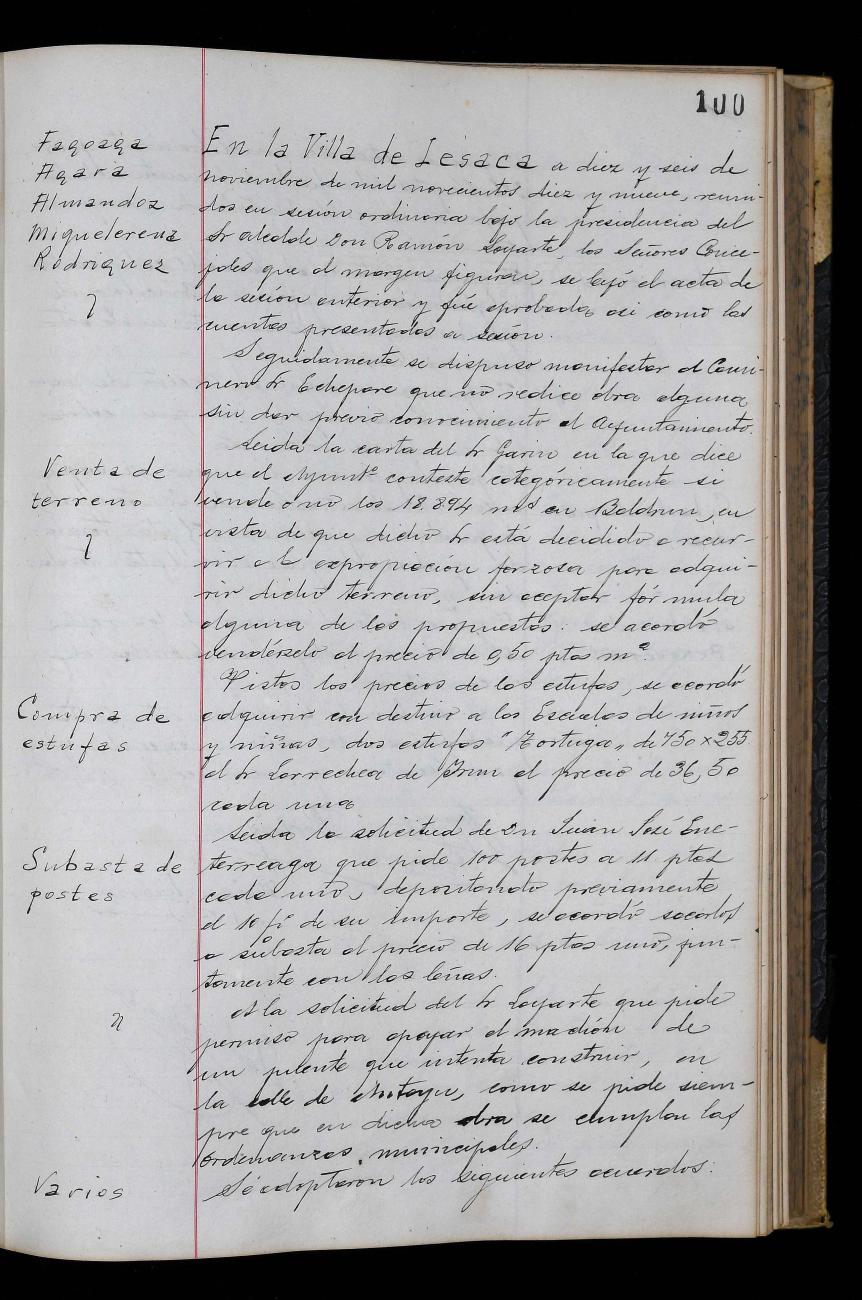 100
Fagoaga
Agara
Almandoz
Miquelerena
Rodriguez
En la Villa de Lesaca a diez y seis de
noviembre de mil novecientos diez y nueve, reuni-
dos en sesión ordinaria bajo la presidencia del
Sr alcalde Don Ramón Loyarte, los Señores Conce-
jales que al margen figuran, se leyó el acta de
la sesión anterior y fué aprobada asi como las
cuentas presentadas a sesión.
Seguidamente se dispuso manifestar al Cami-
nero Sr Echepare que no redice obra alguna
sin dar previo conocimiento al Ayuntamiento.
Venta de
terreno
Leida la carta del Sr Garin en la que dice
que el Ayuntº conteste categóricamente si
vende o no los 18.894 ms en Baldrun, en
vista de que dicho Sr está decidido a recur-
rir a la expropiación forzosa para adqui-
rir dicho terreno, sin aceptar fórmula
alguna de las propuestas: se acordó
vendérselo al precio de 0,50 ptas m²
Compra de
estufas
Vistos los precios de las estufas, se acordó
adquirir con destino a las Escuelas de niños
y niñas, dos estufas "Tortuga" de 750 x 255
al Sr Larrechea de Irun al precio de 36,50
cada una
Subasta de
postes
Leida la solicitud de Dn Juan José Ene-
terreaga que pide 100 postes a 11 ptas
cada uno, depositando previamente
el 10 p% de su importe, se acordó sacarlos
a subasta al precio de 16 ptas uno, jun-
tamente con las leñas.
A la solicitud del Sr Loyarte que pide
permiso para apoyar el machón de
un puente que intenta construir, en
la calle de, como se pide siem-
pre que en dicha obra se cumplan las
ordenanzas municipales.
Varios
Se adoptaron los siguientes acuerdos: